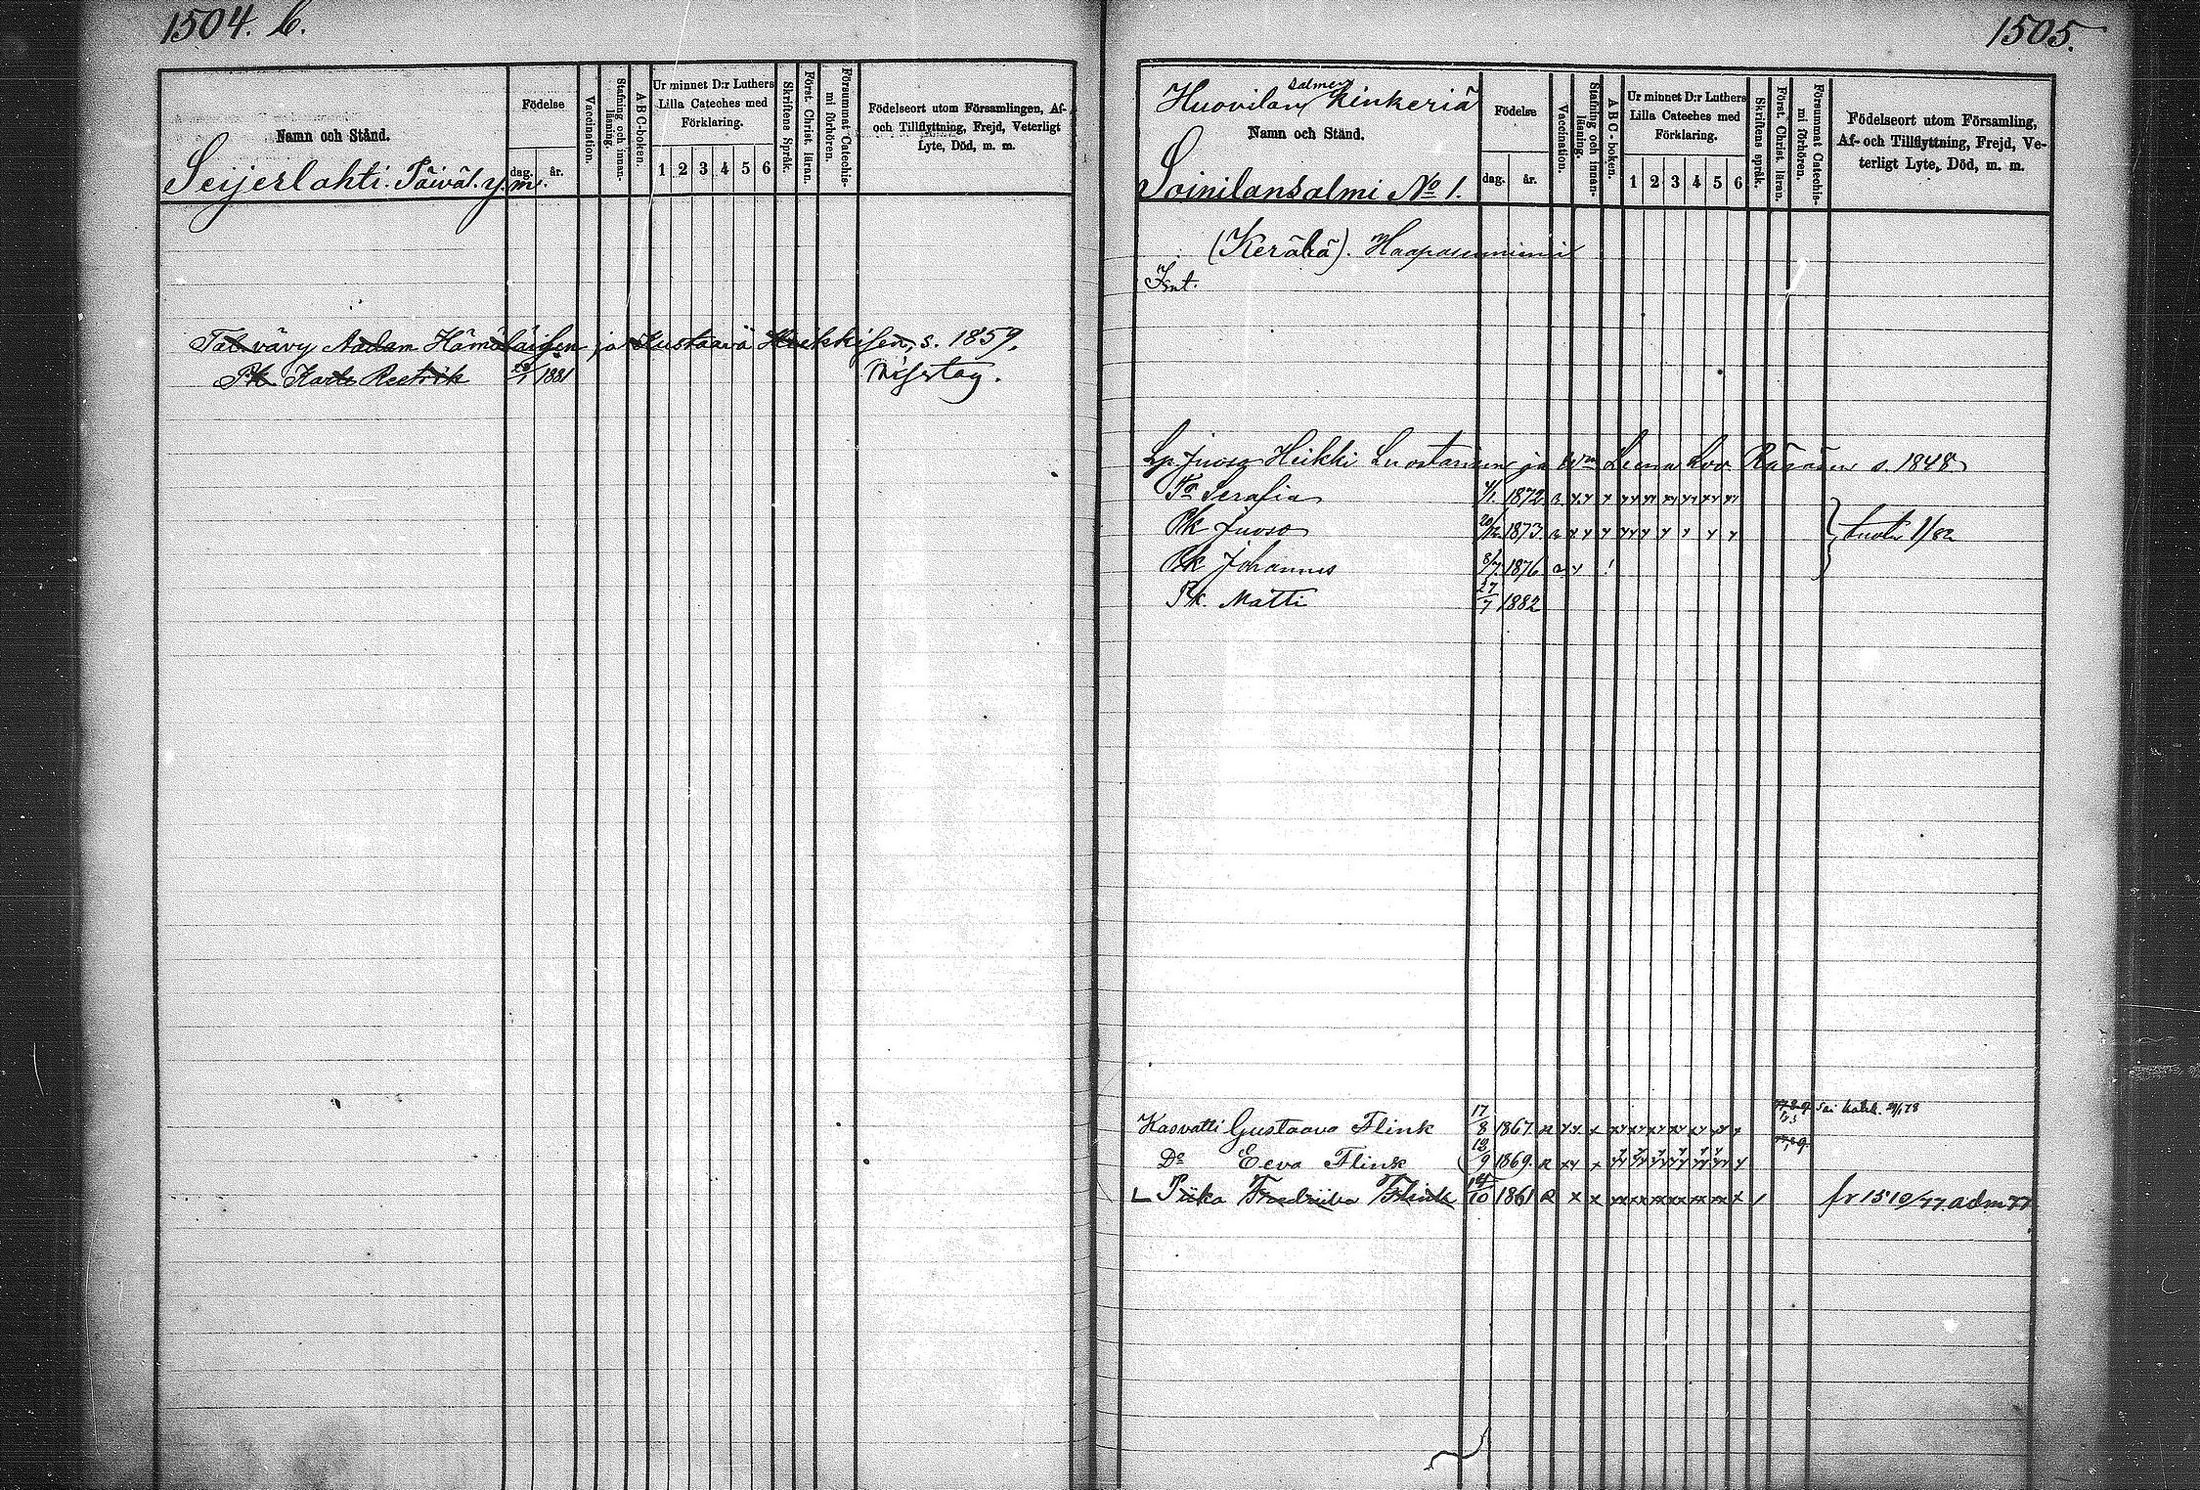 1504. b.
Namn och Stånd.
Födelse
dag.
år.
Vaccination.
Stafning och innan-
läsning.
ABC-boken.
Ur minnet D:r Luthers
Lilla Cateches med
Förklaring.
1 2 3 4 5 6
Skriftens Språk.
Först. Christ. läran.
Försummat Catechis-
mi förhören.
Födelseort utom Församlingen, Af-
och Tillflyttning, Frejd, Veterligt
Lyte, Död, m. m.
Seijerlahti. Päiväl. y. m.
Tal. vävy Aadam Hämäläisen ja Kustaava Heikkisen, s. 1859.
Pk. Karl Reetrik 1881 Misstag.
1505.
Huovilan salmen kinkeriä
Namn och Stånd.
Soinilansalmi No 1.
Födelse
dag.
år.
Vaccination.
Stafning och innan-
läsning.
ABC-boken.
Ur minnet D:r Luthers
Lilla Cateches med
Förklaring.
1 2 3 4 5 6
Skriftens språk.
Först. Christ. läran.
Försummat Catechis-
mi förhören.
Födelseort utom Församling,
Af- och Tillflyttning, Frejd, Ve-
terligt Lyte, Död, m. m.
(Kerälä). Haapasenniemi
Int.
Lp. Juoso Heikki Luostarinen ja Wm Leena Lov. Räsänen s. 1848
Serafia 1872
Pk Juoso 20/12 1873
Pk Johannes 8/7 1876
Pk. Matti 27/7 1882
Kasvatti Gustaava Flink 17/8 1867
Do Eeva Flink 1869
Piika Fredriika Flink 1861 fr 1510/77 adm 77